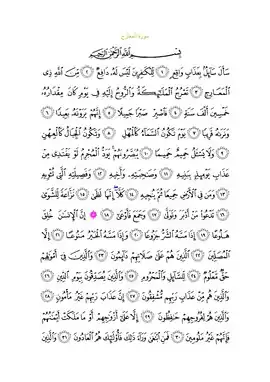 سورة المعارج
بِسْمِ اللَّهِ الرَّحْمَٰنِ الرَّحِيمِ
سَأَلَ سَائِلٌ بِعَذَابٍ وَاقِعٍ ١ لِلْكَافِرِينَ لَيْسَ لَهُ دَافِعٌ ٢ مِنَ اللَّهِ ذِي
الْمَعَارِجِ ٣ تَعْرُجُ الْمَلَائِكَةُ وَالرُّوحُ إِلَيْهِ فِي يَوْمٍ كَانَ مِقْدَارُهُ
خَمْسِينَ أَلْفَ سَنَةٍ ٤ فَاصْبِرْ صَبْرًا جَمِيلًا ٥ إِنَّهُمْ يَرَوْنَهُ بَعِيدًا ٦
وَنَرَاهُ قَرِيبًا ٧ يَوْمَ تَكُونُ السَّمَاءُ كَالْمُهْلِ ٨ وَتَكُونُ الْجِبَالُ كَالْعِهْنِ
٩ وَلَا يَسْأَلُ حَمِيمٌ حَمِيمًا ١٠ يُبَصَّرُونَهُمْ يَوَدُّ الْمُجْرِمُ لَوْ يَفْتَدِي مِنْ
عَذَابِ يَوْمِئِذٍ بِبَنِيهِ ١١ وَصَاحِبَتِهِ وَأَخِيهِ ١٢ وَفَصِيلَتِهِ الَّتِي تُؤْوِيهِ
١٣ وَمَنْ فِي الْأَرْضِ جَمِيعًا ثُمَّ يُنْجِيهِ ١٤ كَلَّا إِنَّهَا لَظَىٰ ١٥ نَزَّاعَةً لِلشَّوَىٰ
١٦ تَدْعُو مَنْ أَدْبَرَ وَتَوَلَّىٰ ١٧ وَجَمَعَ فَأَوْعَىٰ ١٨ إِنَّ الْإِنْسَانَ خُلِقَ
هَلُوعًا ١٩ إِذَا مَسَّهُ الشَّرُّ جَزُوعًا ٢٠ وَإِذَا مَسَّهُ الْخَيْرُ مَنُوعًا ٢١ إِلَّا
الْمُصَلِّينَ ٢٢ الَّذِينَ هُمْ عَلَىٰ صَلَاتِهِمْ دَائِمُونَ ٢٣ وَالَّذِينَ فِي أَمْوَالِهِمْ
حَقٌّ مَعْلُومٌ ٢٤ لِلسَّائِلِ وَالْمَحْرُومِ ٢٥ وَالَّذِينَ يُصَدِّقُونَ بِيَوْمِ الدِّينِ ٢٦
وَالَّذِينَ هُمْ مِنْ عَذَابِ رَبِّهِمْ مُشْفِقُونَ ٢٧ إِنَّ عَذَابَ رَبِّهِمْ غَيْرُ مَأْمُونٍ ٢٨
وَالَّذِينَ هُمْ لِفُرُوجِهِمْ حَافِظُونَ ٢٩ إِلَّا عَلَىٰ أَزْوَاجِهِمْ أَوْ مَا مَلَكَتْ أَيْمَانُهُمْ
فَإِنَّهُمْ غَيْرُ مَلُومِينَ ٣٠ فَمَنِ ابْتَغَىٰ وَرَاءَ ذَٰلِكَ فَأُولَٰئِكَ هُمُ الْعَادُونَ ٣١ وَالَّذِينَ